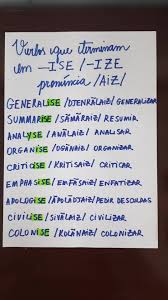 Verbos que terminam
em -ISE / -IZE
pronúncia /AIZ/
GENERALISE /DJENRÂLAIZ/ GENERALIZAR
SUMMARISE /SÂMÂRAIZ/ RESUMIR
ANALYSE /ANÂLAIZ/ ANALISAR
ORGANISE /ÓGÂNAIZ/ ORGANIZAR
CRITICISE /KRITISAIZ/ CRITICAR
EMPHASISE /EMFÂSAIZ/ ENFATIZAR
APOLOGISE /ÂPÓLÂDJAIZ/ PEDIR DESCULPAS
CIVILISE /SIVÂLAIZ/ CIVILIZAR
COLONISE /KOLÂNAIZ/ COLONIZAR